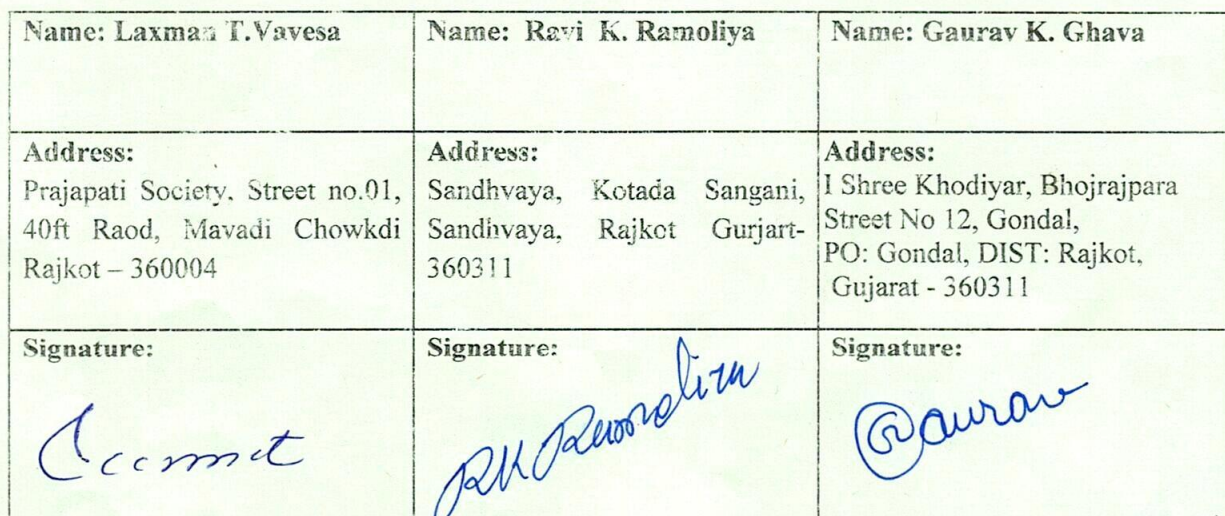 Name: Laxman T.Vavesa
Name: Ravi K. Ramoliya
Name: Gaurav K. Ghava
Address:
Prajapati Society, Street no.01,
40ft Raod, Mavadi Chowkdi
Rajkot – 360004
Address:
Sandhvaya, Kotada Sangani,
Sandhvaya, Rajkot Gurjart-
360311
Address:
I Shree Khodiyar, Bhojrajpara
Street No 12, Gondal,
PO: Gondal, DIST: Rajkot,
Gujarat - 360311
Signature:
Signature:
RK Ramoliya
Signature:
Gaurav